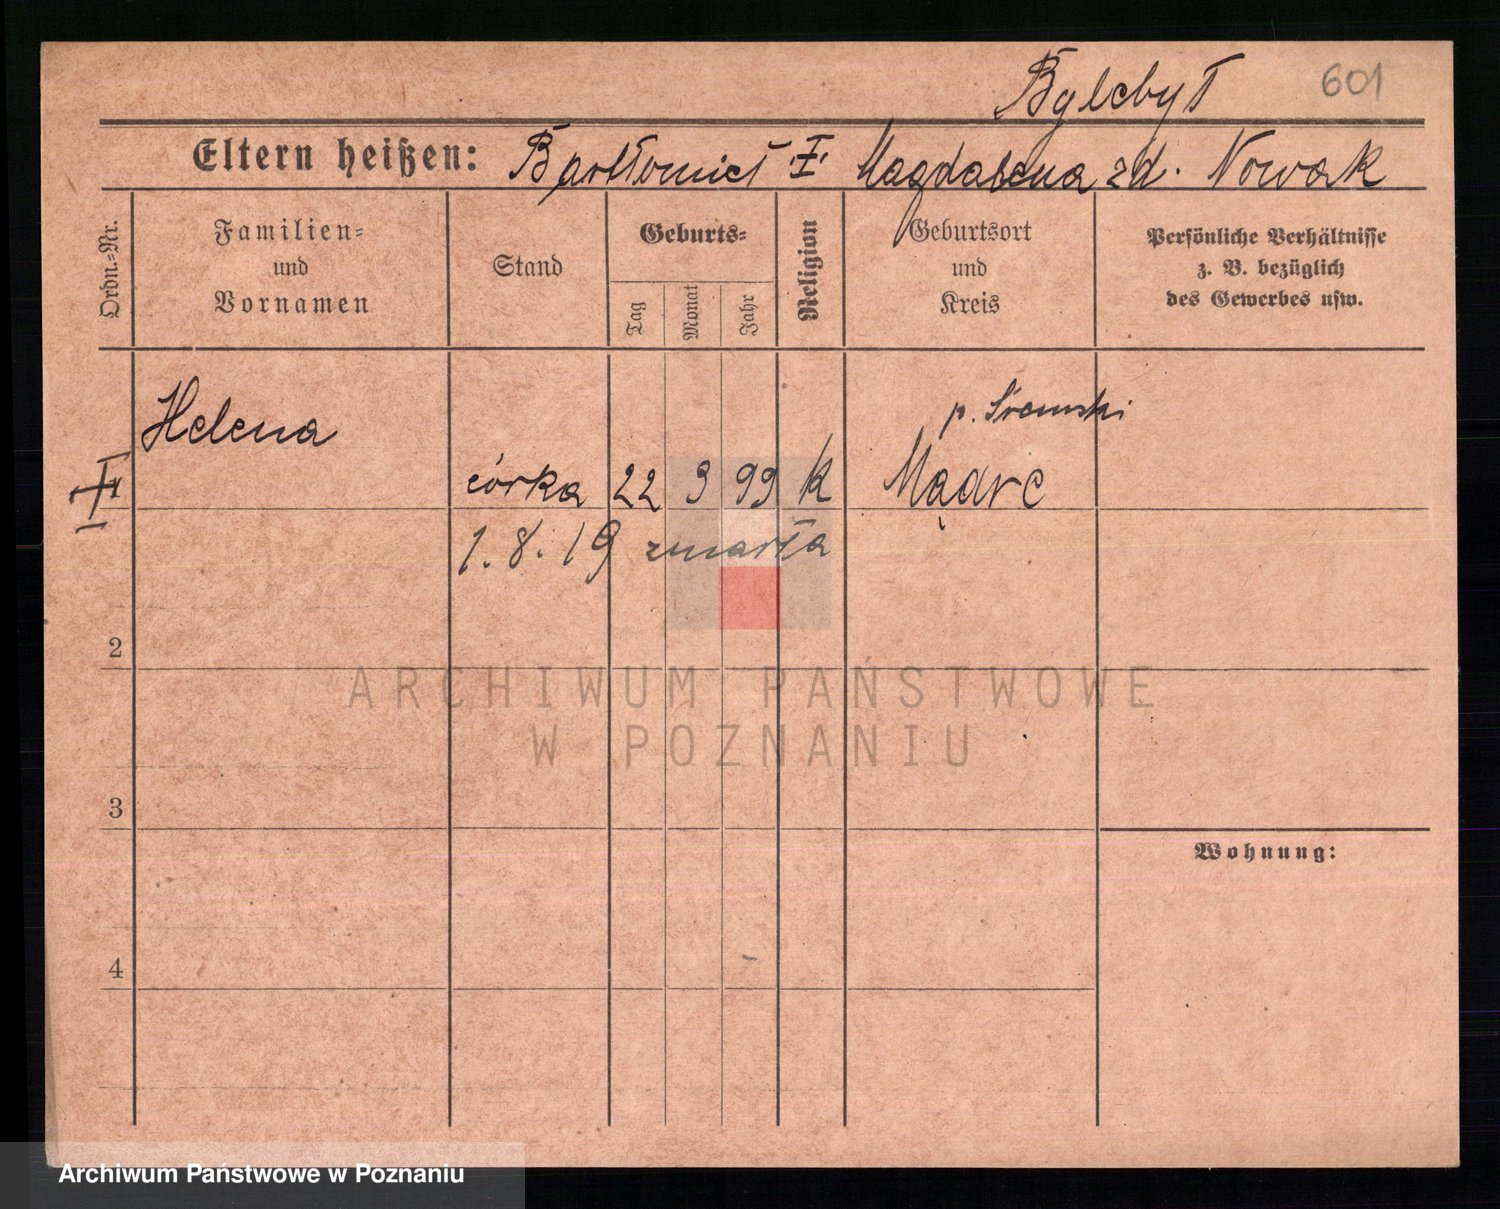 Bylebył 601
Eltern heißen: Bartłomiej i Magdalena zd. Nowak
Ordn.-Nr.
Familien- und Vornamen
Stand
Geburts-
Tag
Monat
Jahr
Religion
Geburtsort und Kreis
Persönliche Verhältnisse
z. B. bezüglich
des Gewerbes usw.
Helena
p. Śremski
córka 22 3 99 k Mądre
1. 8. 19 zmarła
2
3
Wohnung:
4
ARCHIWUM PAŃSTWOWE
W POZNANIU
Archiwum Państwowe w Poznaniu